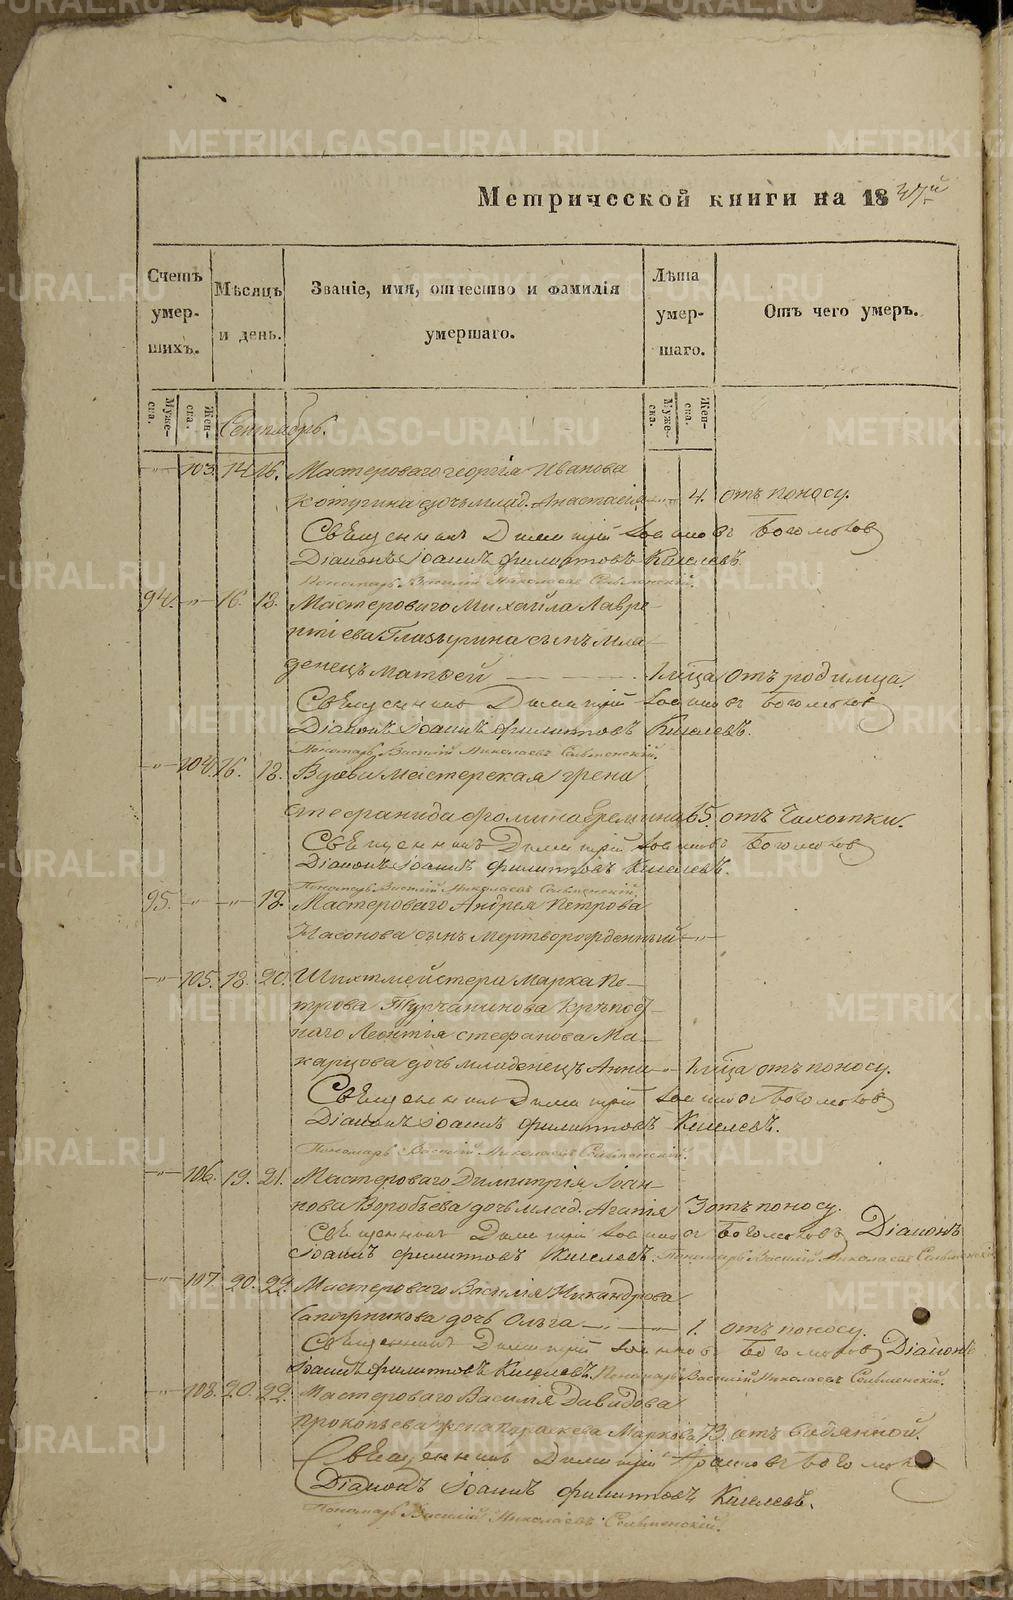 Метрической книги на 1837й
Счетъ умер- шихъ.
Мѣсяцъ и день.
Званіе, имя, отчество и фамилія умершаго.
Лѣта умер- шаго.
Отъ чего умеръ.
Муже- ска.
Жен- ска.
Муже- ска.
Жен- ска.
Сентябрь.
—"— 103. 14. 16. Мастероваго Георгія Иванова
дочь млад. Анастасія —"— 4. отъ поносу.
Священникъ Димитрій Іоанновъ Богомоловъ
Діаконъ Іоаннъ Филипповъ Киселевъ.
Пономарь Василій Николаевъ Сельменскій.
94. —"— 16. 18. Мастероваго Михайла Лавре-
нтіева Глазырина сынъ мла-
денецъ Матвей — — — 1 мѣца отъ родимца.
Священникъ Димитрій Іоанновъ Богомоловъ
Діаконъ Іоаннъ Филипповъ Киселевъ.
Пономарь Василій Николаевъ Сельменскій.
—"— 104. 16. 18. Вдова мастерская жена
Стефанида Фомина Еремина 65. отъ Чахотки.
Священникъ Димитрій Іоанновъ Богомоловъ
Діаконъ Іоаннъ Филипповъ Киселевъ.
Пономарь Василій Николаевъ Сельменскій.
95. —"— —"— 18. Мастероваго Андрея Петрова
Насонова сынъ мертворожденный —"—
—"— 105. 18. 20. Шихтмейстера Марка Пе-
трова Турчанинова Крѣпост-
наго Леонтія Стефанова Ма-
карцова дочь младенецъ Анна —"— 1 мѣца отъ поносу.
Священникъ Димитрій Іоанновъ Богомоловъ
Діаконъ Іоаннъ Филипповъ Киселевъ.
Пономарь Василій Николаевъ Сельменскій.
—"— 106. 19. 21. Мастероваго Димитрія Іоан-
нова Воробьева дочь млад. Агапія 3 отъ поносу.
Священникъ Димитрій Іоанновъ Богомоловъ Діаконъ
Іоаннъ Филипповъ Киселевъ. Пономарь Василій Николаевъ Сельменскій
—"— 107. 20. 22. Мастероваго Василія Никандрова
Сапожникова дочь Ольга —"— 1. отъ поносу.
Священникъ Димитрій Іоанновъ Богомоловъ Діаконъ
Іоаннъ Филипповъ Киселевъ. Пономарь Василій Николаевъ Сельменскій.
—"— 108. 20. 22. Мастероваго Василія Давидова
Прокопьева жена Параскева Маркова 73. отъ водянной.
Священникъ Димитрій Іоанновъ Богомоловъ
Діаконъ Іоаннъ Филипповъ Киселевъ.
Пономарь Василій Николаевъ Сельменскій.
METRIKI.GASO-URAL.RU